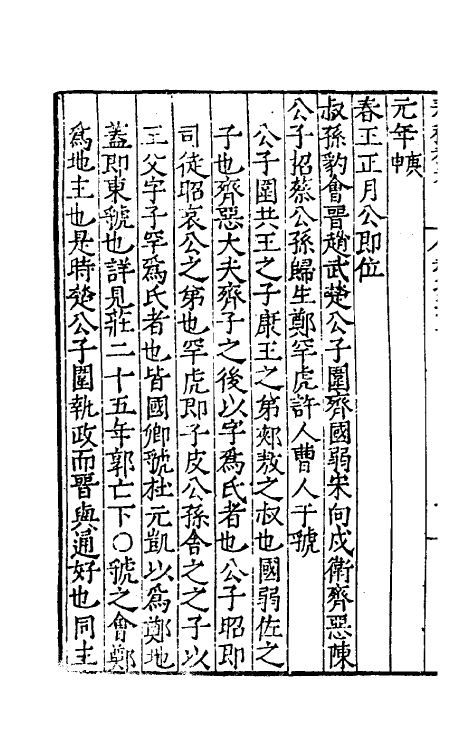 元年庚申
春王正月公即位
叔孫豹會晉趙武楚公子圍齊國弱宋向戌衛齊惡陳
公子招蔡公孫歸生鄭罕虎許人曹人于虢
公子圍共王之子康王之弟郟敖之叔也國弱佐之
子也齊惡大夫齊子之後以字爲氏者也公子昭即
司徒昭哀公之弟也罕虎即子皮公孫舍之之子以
王父字子罕爲氏者也皆國卿虢杜元凱以爲鄭地
蓋即東虢也詳見莊二十五年郭亡下○虢之會鄭
爲地主也是時楚公子圍執政而晉與通好也同主